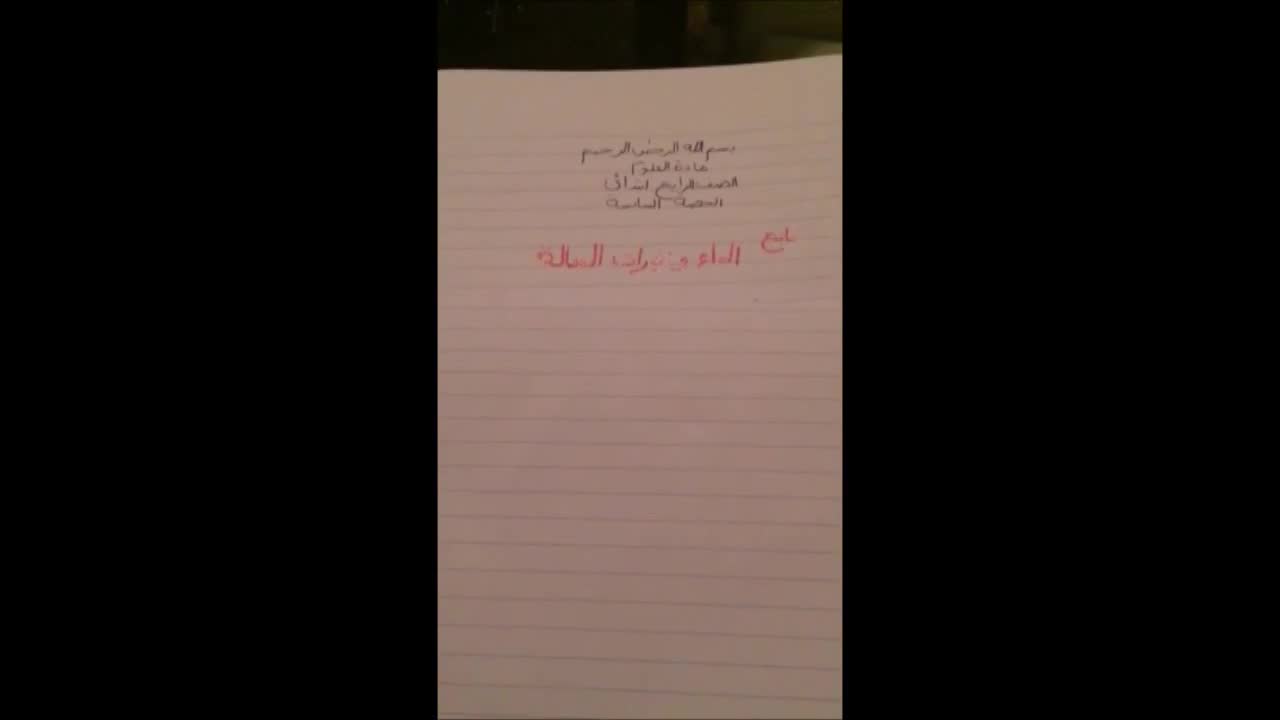 بسم الله الرحمن الرحيم
مادة العلوم
الصف الرابع ابتدائى
الحصة السادسة
تابع
الماء وتغيرات الحالة